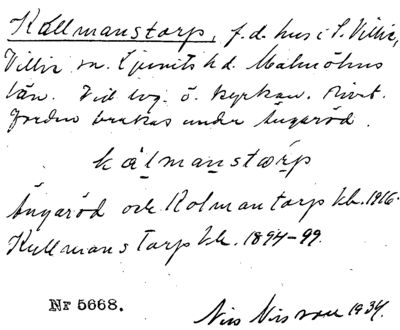 Källmanstorp, f.d. hus i S. Villie,
Villie sn. Ljunits hd. Malmöhus
län. Vid väg. ö. kyrkan. Rivet.
Jorden brukas under Ängaröd.
kälmanstárp
Ängaröd och Kolmantorp kb. 1916.
Kullmanstorp kb. 1894-99.
Nr 5668.
Nils Nilsson 1934.